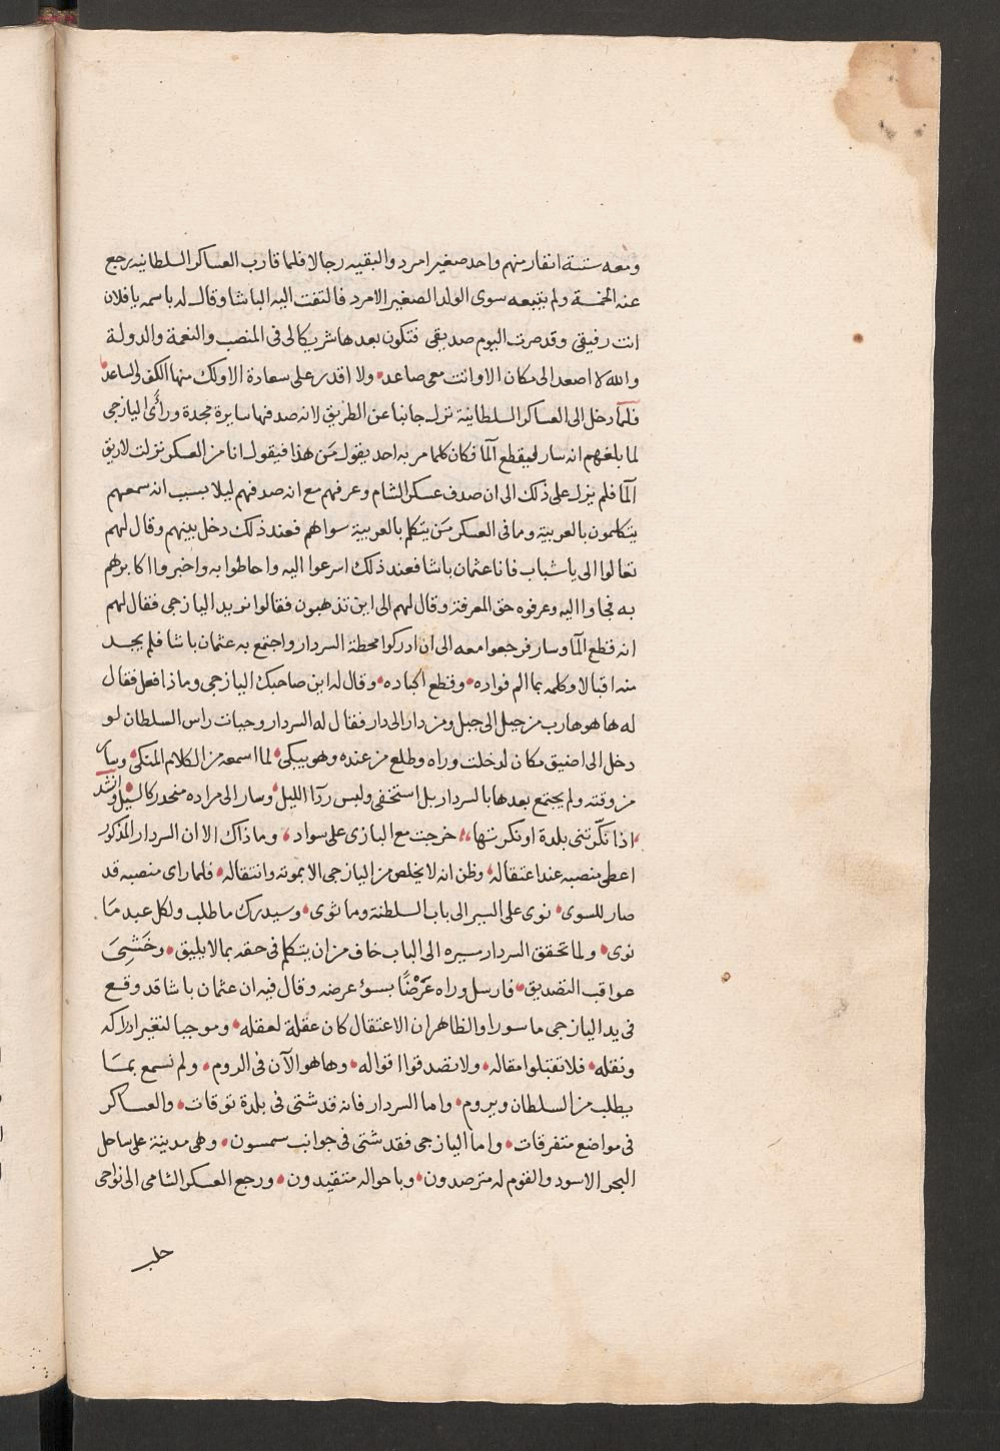 ومعه ستة انفار منهم واحد صغير امرد والبقيه رجالا فلما قارب العساكر السلطانيه رجع
عنه الخمسة ولم يتبعه سوى الولد الصغير الامرد فالتفت اليه الباشا وقال له باسمه يا فلان
انت رفيقى وقد صرت اليوم صديقى فتكون بعدها شريكا لى فى المنصب والنعمة والدولة
والله لا اصعد الى مكان الا وانت معى صاعد ولا اقدر على سعادة الا ولك منها الكف والساعد
فلما دخل الى العساكر السلطانية نزل جانبا عن الطريق لانه صدفها سايرة مجدة ورأى اليازجى
لما بلغهم انه سار ليقطع آلما فكان كلما مر به احد يقول مَن هذا فيقول انا من العسكر نزلت لاريق
آلما فلم يزل على ذلك الى ان صدف عسكر الشام وعرفهم مع انه صدفهم ليلا بسبب انه سمعهم
يتكلمون بالعربية وما فى العسكر مَن يتكلم بالعربية سواهم فعند ذلك دخل بينهم وقال لهم
تعالوا الى يا شباب فانا عثمان باشا فعند ذلك اسرعوا اليه واحاطوا به واخبروا اكابرهم
به فجاوا اليه وعرفوه حق المعرفة وقال لهم الى اين تذهبون فقالوا نريد اليازجى فقال لهم
انه قطع آلما وسار فرجعوا معه الى ان ادركوا محطة السردار واجتمع به عثمان باشا فلم يجد
منه اقبالا وكلمه بما الم فواده وقطع اكباده وقال له اين صاحبك اليازجى وماذا فعل فقال
له ها هو هارب من جبل الى جبل ومن دار الى دار فقال له السردار وحيات راس السلطان لو
دخل الى اضيق مكان لدخلت وراه وطلع من عنده وهو يبكى لما اسمعه من الكلام المنكى وسار
من وقته ولم يجتمع بعدها بالسردار بل استخفى ولبس ردآ الليل وسار الى مراده منحدر كالسيل وانشد
اذا نكّرتنى بلدة او نكرتها خرجت مع البازى على سواد وما ذاك الا ان السردار المذكور
اعطى منصبه عند اعتقاله وظن انه لا يخلص من اليازجى الا بموته وانتقاله فلما راى منصبه قد
صار للسوى نوى على السير الى باب السلطنة وما ثوى وسيدرك ما طلب ولكل عبد مَا
نوى ولما تحقق السردار سيره الى الباب خاف من ان يتكلم فى حقه بما لا يليق وخَشِىَ
عواقب التصديق فارسل وراه عَرْضًا بسوء عرضه وقال فيه ان عثمان باشا قد وقع
فى يد اليازجى ماسورا والظاهر ان الاعتقال كان عقلة لعقله وموجبا لتغير ادراكه
ونقله فلا تقبلوا مقاله ولا تصدقوا اقواله وها هو الآن فى الروم ولم نسمع بمَا
يطلب من السلطان ويروم واما السردار فانه قد شتى فى بلدة توقات والعساكر
فى مواضع متفرقات واما اليازجى فقد شتى فى جوانب سمسون وهى مدينة على ساحل
البحر الاسود والقوم له مترصدون وباحواله متقيدون ورجع العسكر الشامى الى نواحى
حلب